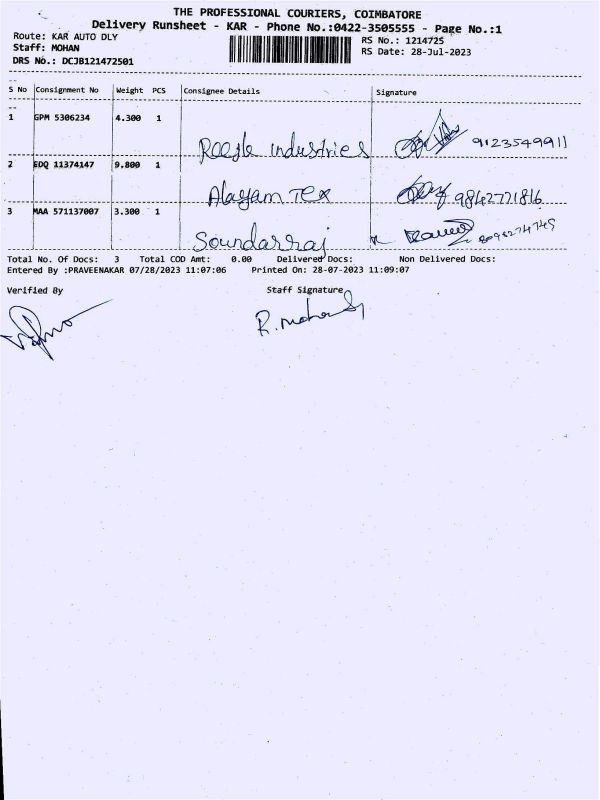 THE PROFESSIONAL COURIERS, COIMBATORE
Delivery Runsheet - KAR - Phone No.:0422-3505555 - Page No.:1
Route: KAR AUTO DLY
RS No.: 1214725
Staff: MOHAN
RS Date: 28-Jul-2023
DRS No.: DCJB121472501
S No Consignment No Weight PCS Consignee Details Signature
1 GPM 5306234 4.300 1 industries 9123549911
2 EDQ 11374147 9.800 1 Alayam Tex 9842771816
3 MAA 571137007 3.300 1 Soundarraj
Total No. Of Docs: 3 Total COD Amt: 0.00 Delivered Docs: Non Delivered Docs:
Entered By :PRAVEENAKAR 07/28/2023 11:07:06 Printed On: 28-07-2023 11:09:07
Verified By Staff Signature
R. Mohan